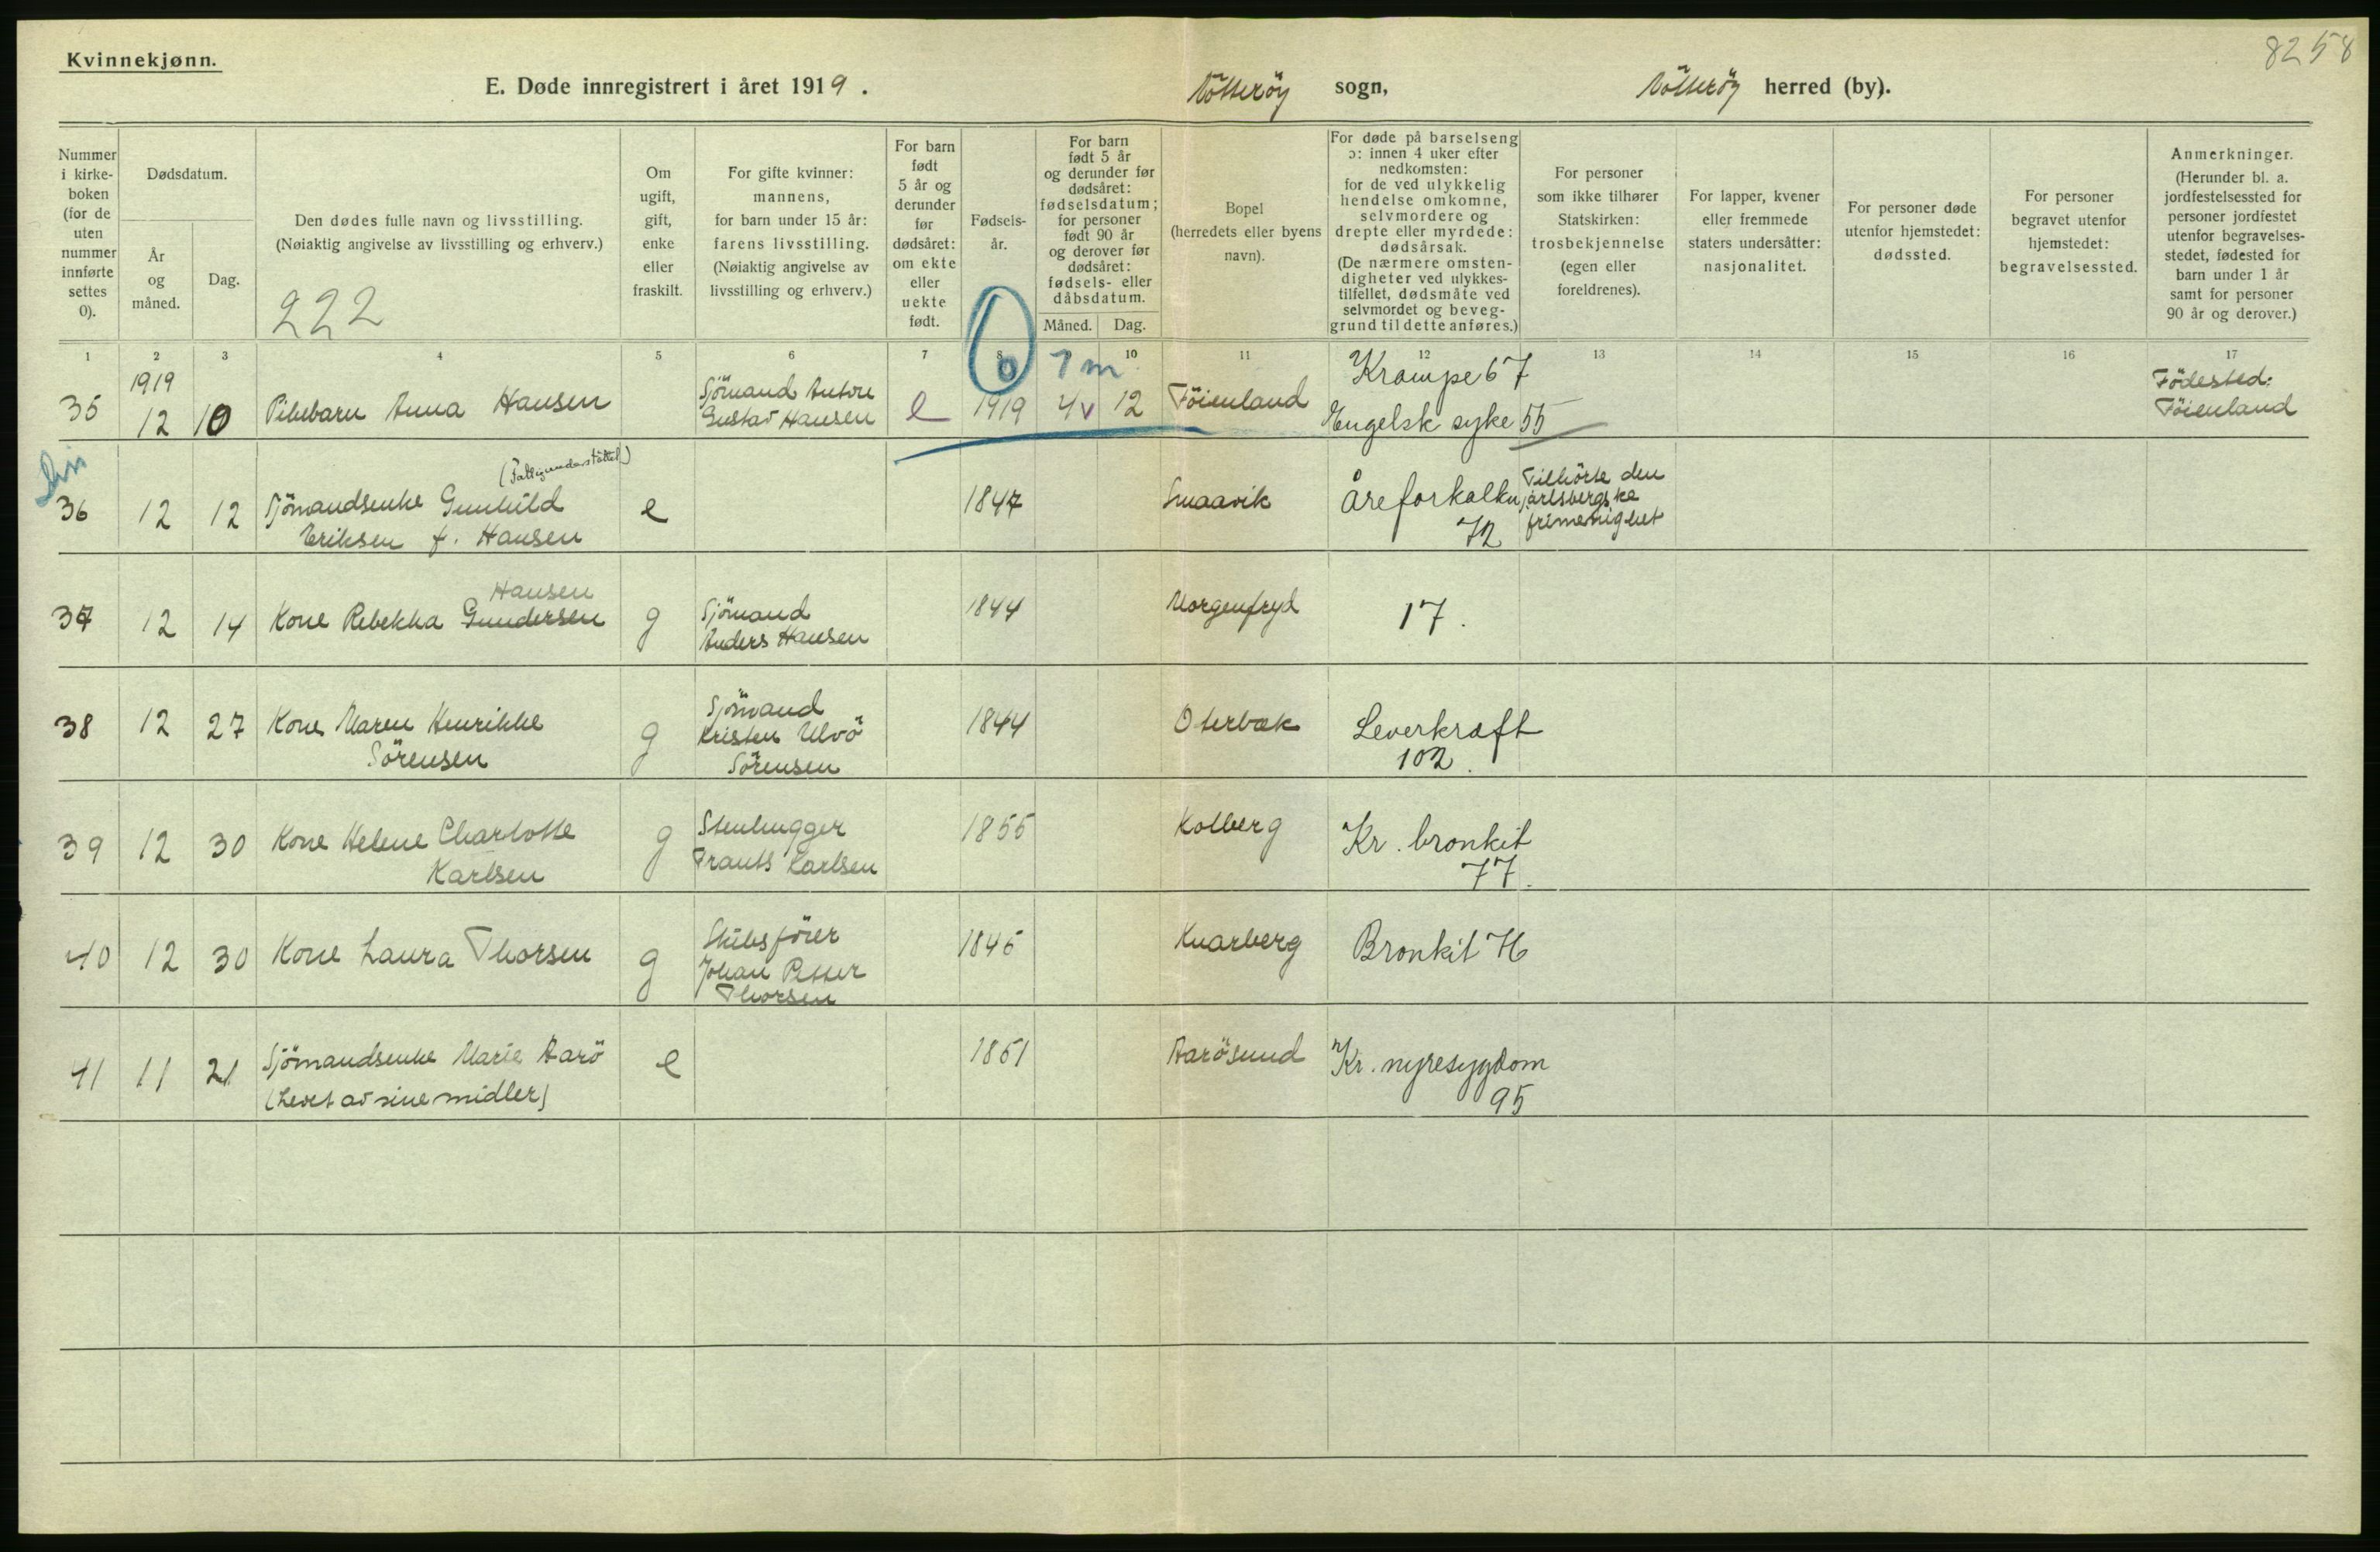 8258
Kvinnekjønn.
E. Døde innregistrert i året 1919. Nötteröy sogn, Nötteröy herred (by).
Nummer i kirke-boken (for de uten nummer innførte settes 0).
Dødsdatum.
År og måned.
Dag.
Den dødes fulle navn og livsstilling.
(Nøiaktig angivelse av livsstilling og erhverv.)
222
Om ugift, gift, enke eller fraskilt.
For gifte kvinner: mannens, for barn under 15 år: farens livsstilling. (Nøiaktig angivelse av livsstilling og erhverv.)
For barn født 5 år og derunder før dødsåret: om ekte eller uekte født.
Fødsels-år.
For barn født 5 år og derunder før dødsåret: fødselsdatum; for personer født 90 år og derover før dødsåret: fødsels- eller dåbsdatum.
Måned. Dag.
Bopel (herredets eller byens navn).
For døde på barselseng ɔ: innen 4 uker efter nedkomsten: for de ved ulykkelig hendelse omkomne, selvmordere og drepte eller myrdede: dødsårsak. (De nærmere omsten-digheter ved ulykkes-tilfellet, dødsmåte ved selvmordet og beveg-grund til dette anføres.)
For personer som ikke tilhører Statskirken: trosbekjennelse (egen eller foreldrenes).
For lapper, kvener eller fremmede staters undersåtter: nasjonalitet.
For personer døde utenfor hjemstedet: dødssted.
For personer begravet utenfor hjemstedet: begravelsessted.
Anmerkninger. (Herunder bl. a. jordfestelsessted for personer jordfestet utenfor begravelses-stedet, fødested for barn under 1 år samt for personer 90 år og derover.)
1 2 3 4 5 6 7 8 10 11 12 13 14 15 16 17
0 7 m
1919
35 12 10 Pikebarn Anna Hansen Sjömand Antore Gustav Hansen e 1919 4 v 12 Föienland Krampe 67 Engelsk syke 55 Födested: Föienland
36 12 12 Sjömandsenke Gunhild (Fattigunderstöttet) Eriksen f. Hansen e 1847 Smaavik Åreforkalkn 72 Tilhörte den jarlsbergske frimenighet
37 12 14 Kone Rebekka Gundersen Hansen g Sjömand Anders Hansen 1844 Morgenfryd 17.
38 12 27 Kone Maren Henrikke Sörensen g Sjömand Kristen Ulvö Sörensen 1844 Oterbæk Leverkræft 102.
39 12 30 Kone Helene Charlotte Karlsen g Stenhugger Frants Karlsen 1855 Kolberg Kr. bronkit 77.
40 12 30 Kone Laura Thorsen g Skibsförer Johan Petter Thorsen 1845 Knarberg Bronkit 76
41 11 21 Sjömandsenke Marie Aarö (Levet av sine midler) e 1851 Aarösund Kr. nyresygdom 95